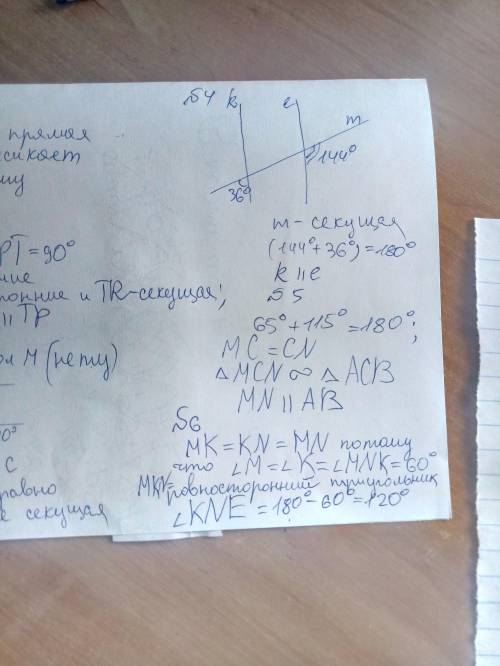 прямая
PT = 90°
и TR-секущая;
|| TP
M (нету)
C
секущая
№4 k e
m
144°
36°
m - секущая
(144° + 36°) = 180°
k || e
№5
65° + 115° = 180°;
MC = CN
△MCN ∞ △ACB
MN || AB
№6
MK = KN = MN потому
что ∠M = ∠K = ∠MNK = 60°
MKN = ровносторонний триугольник
∠KNE = 180° - 60° = 120°